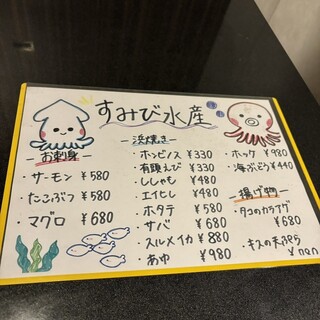 すみび水産
お刺身
・サーモン ¥580
・たこぶつ ¥580
・マグロ ¥680
浜焼き
・ホンビノス ¥330
・有頭えび ¥330
・ししゃも ¥480
・エイヒレ ¥480
・ホタテ ¥580
・サバ ¥680
・スルメイカ ¥880
・あゆ ¥980
・ホッケ ¥980
・海ぶどう ¥440
揚げ物
・タコのカラアゲ
¥680
・キスの天ぷら